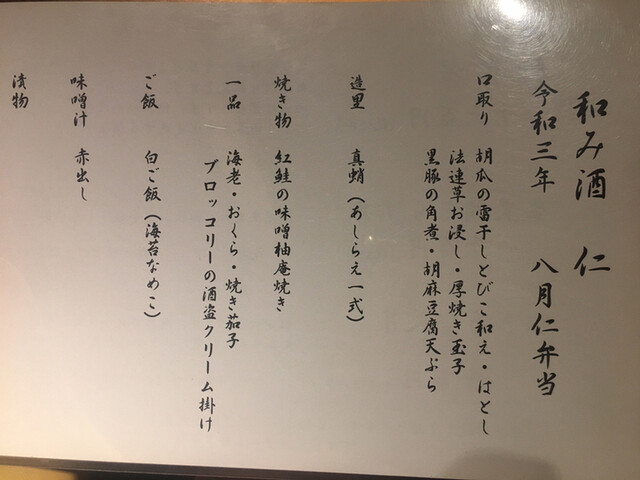 和み酒 仁
令和三年 八月仁弁当
口取り 胡瓜の雷干しとびこ和え・はとし
法連草お浸し・厚焼き玉子
黒豚の角煮・胡麻豆腐天ぷら
造里 真蛸(あしらえ一式)
焼き物 紅鮭の味噌柚庵焼き
一品 海老・おくら・焼き茄子
ブロッコリーの酒盗クリーム掛け
ご飯 白ご飯(海苔なめこ)
味噌汁 赤出し
漬物